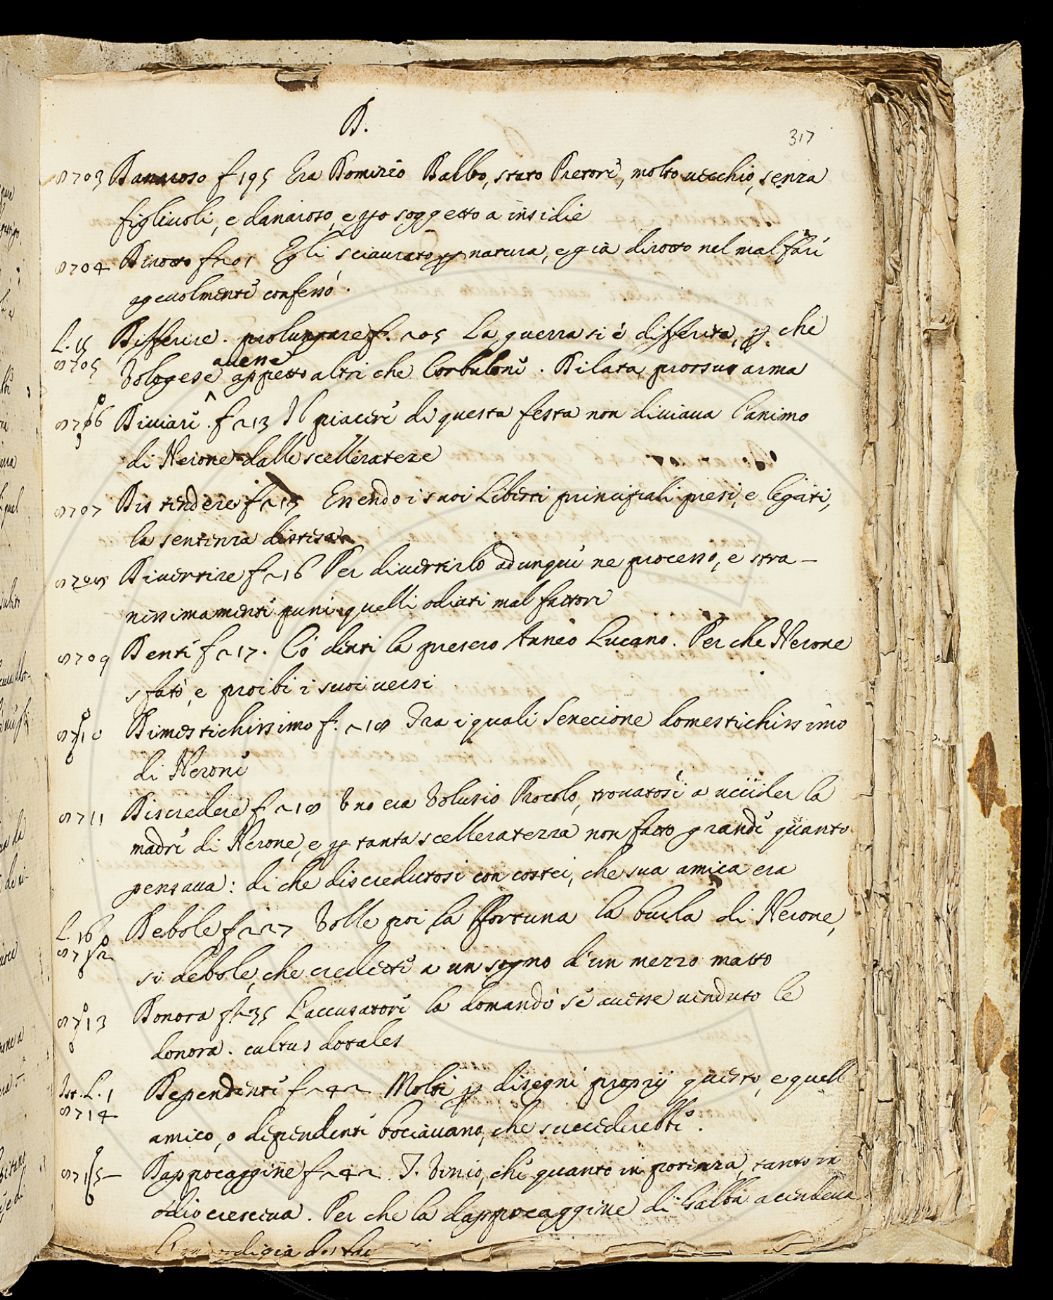 D.
317
8703 Danaioso f 195 Era Domizio Balbo, stato Pretore, molto vecchio, senza
figliuoli, e danaioso, e pto soggetto a insidie
8704 Dirotto f 201 Egli sciaurato p natura, e già dirotto nel mal fare
agevolmente confessò.
L. 15 Differire. prolungare f. 205 La guerra si è differita, p che
8705 Vologese avene appetto altri che Corbulone. Dilata prorsus arma
8706 Diviare. f 213 Il piacere di questa festa non diviava l'animo
di Nerone dalle scelleratezze
8707 Distendere f 215 Essendo i suoi Liberti principali presi, e legati,
la sentenzia distesa
8708 Divertire f 216 Per divertirlo adunque ne processò, e stra-
nissimamente puni quelli odiati malfattori
8709 Denti f 217. Co' denti la presero Anneo Lucano. Per che Nerone
sfatò, e proibì i suoi versi
8710 Dimestichissimo f. 218 Tra i quali Senecione domestichissimo
di Nerone
8711 Discredere f 218 Uno era Volusio Procolo, trovatosi a uccider la
madre di Nerone, e p tanta scelleratezza non fatto grande quanto
pensava: di che discredutosi con costei, che sua amica era
L. 16 Debole f 227 Volle poi la Fortuna la burla di Nerone,
8712 si debole, che credette a un sogno d'un mezzo matto
8713 Donora f 235 L'accusatore la domandò se avesse venduto le
donora. cultus dotales
Ist. L. 1 Dependenti f 242 Molti p disegni proprij questo, e quell
8714 amico, o dependente bociavano, che succederebbe.
8715 Dappocaggine f 242 T. Vinio, che quanto in potenza, tanto in
odio cresceva. Per che la dappocaggine di Galba accendeva